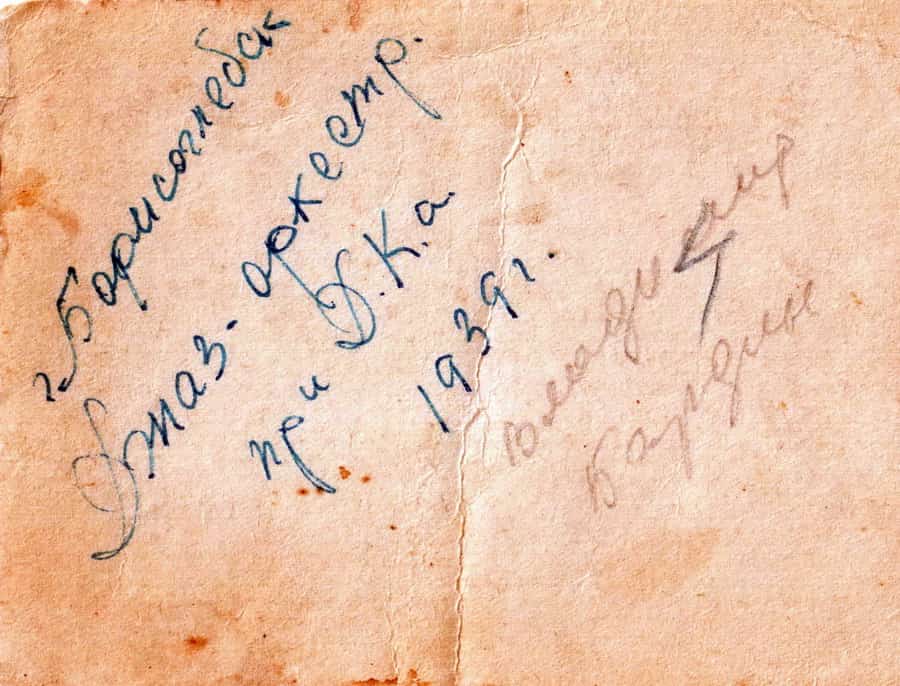 г. Борисоглебск
Джаз-оркестр.
при Д.К.а.
1939г.
Владимир
Бардин